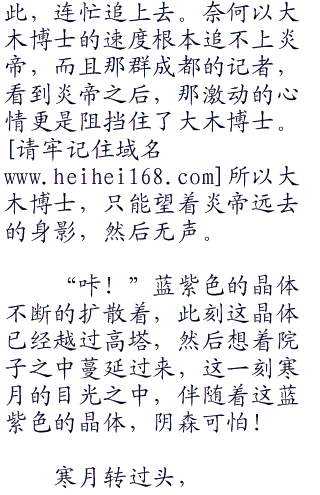 此，连忙追上去。奈何以大
木博士的速度根本追不上炎
帝，而且那群成都的记者，
看到炎帝之后，那激动的心
情更是阻挡住了大木博士。
[请牢记住域名
www.heihei168.com]所以大
木博士，只能望着炎帝远去
的身影，然后无声。
“咔！”蓝紫色的晶体
不断的扩散着，此刻这晶体
已经越过高塔，然后想着院
子之中蔓延过来，这一刻寒
月的目光之中，伴随着这蓝
紫色的晶体，阴森可怕！
寒月转过头，